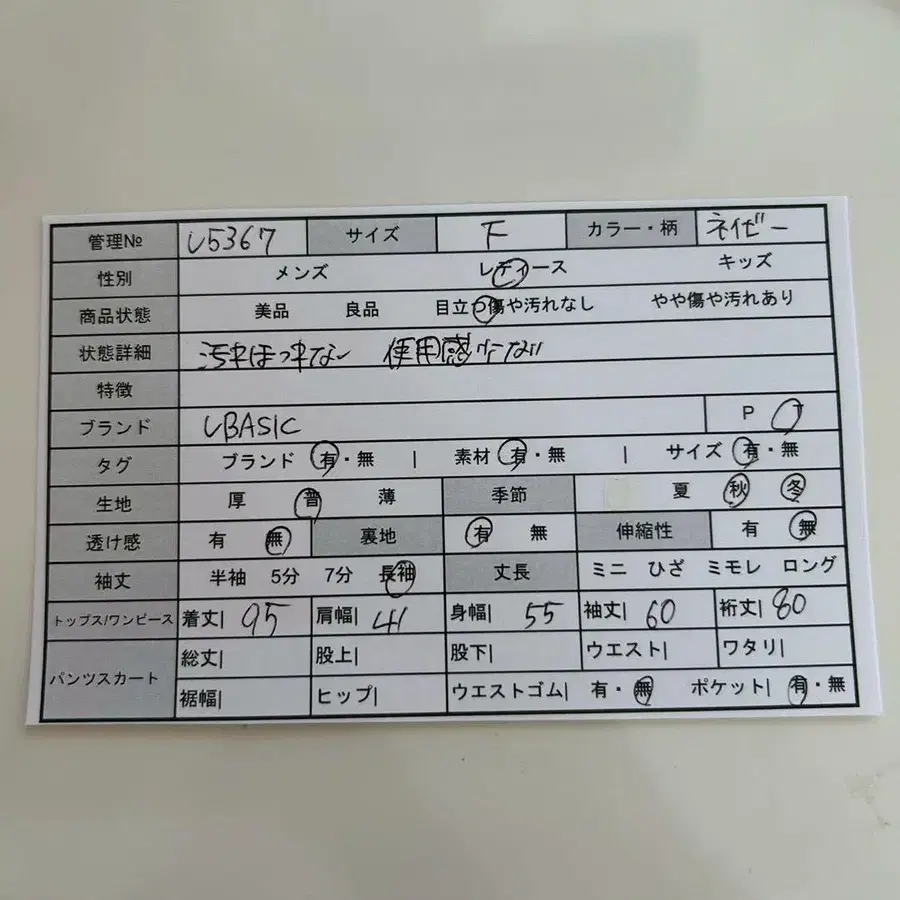 管理№ L5367 サイズ F カラー・柄 ネイビー
性別 メンズ レディース キッズ
商品状態 美品 良品 目立つ傷や汚れなし やや傷や汚れあり
状態詳細 汚れほつれなし 使用感少ない
特徴
ブランド LBASIC P T
タグ ブランド 有・無 | 素材 有・無 | サイズ 有・無
生地 厚 普 薄 季節 夏 秋 冬
透け感 有 無 裏地 有 無 伸縮性 有 無
袖丈 半袖 5分 7分 長袖 丈長 ミニ ひざ ミモレ ロング
トップス/ワンピース 着丈| 95 肩幅| 41 身幅| 55 袖丈| 60 裄丈| 80
パンツスカート 総丈| 股上| 股下| ウエスト| ワタリ|
裾幅| ヒップ| ウエストゴム| 有・無 ポケット| 有・無